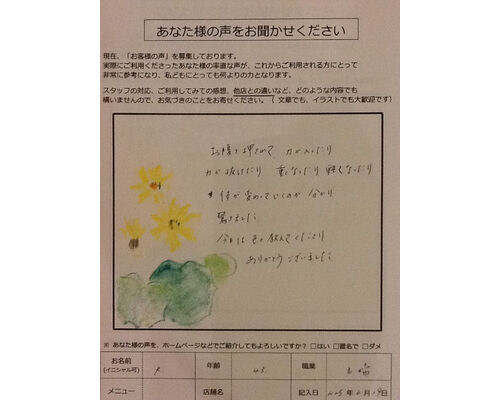 あなた様の声をお聞かせください
現在、「お客様の声」を募集しております。
実際にご利用くださったあなた様の率直な声が、これからご利用される方にとって
非常に参考になり、私どもにとっても何よりの力となります。
スタッフの対応、ご利用してみての感想、他店との違いなど、どのような内容でも
構いませんので、お気づきのことをお寄せください。（ 文章でも、イラストでも大歓迎です）
押されて 力が入ったり
力が抜けたり 重くなったり 軽くなったり
体が変わっていくのが 分かり
驚きました
今日は
ありがとうございました
※ あなた様の声を、ホームページなどでご紹介してもよろしいですか？ □はい □匿名で □ダメ
お名前 年齢 職業
(イニシャル可) K 45 主婦
メニュー 店舗名 記入日